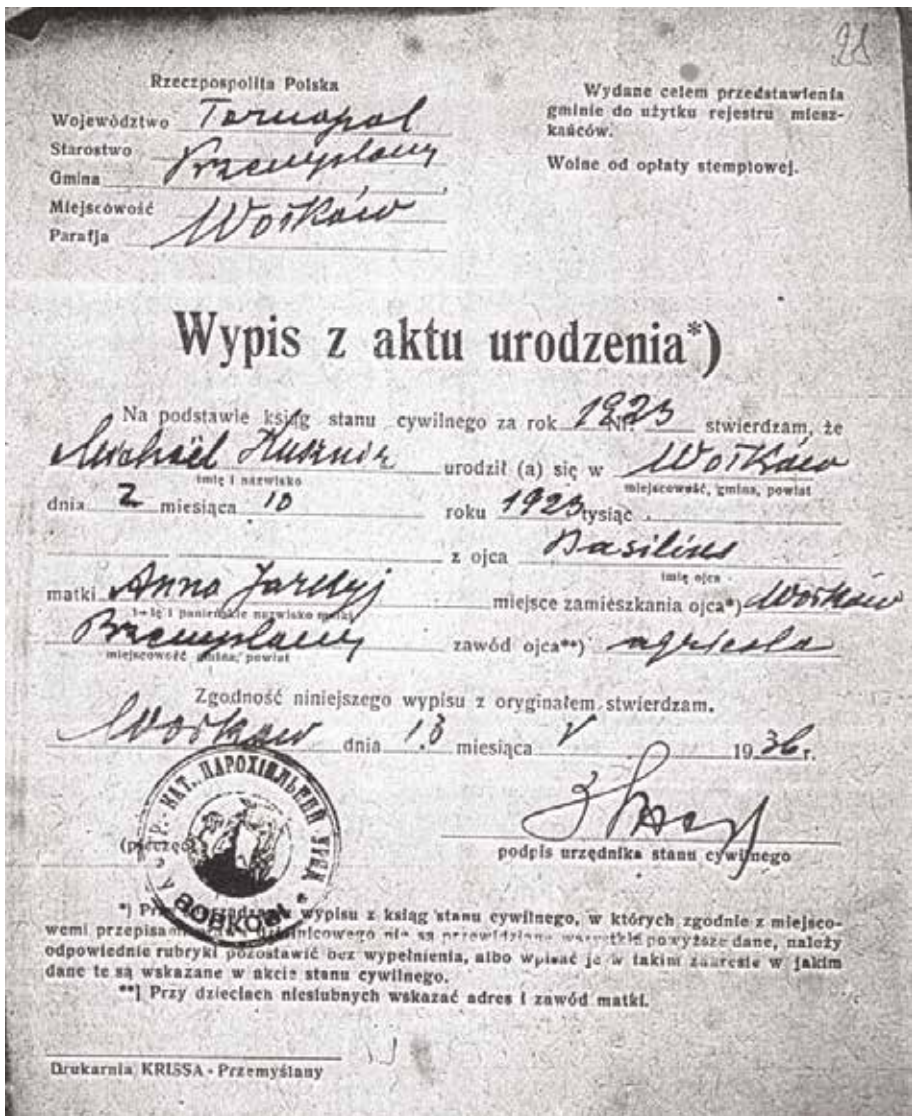 28
Rzeczpospolita Polska
Województwo Tarnopol
Starostwo Przemyślany
Gmina
Miejscowość Wołków
Parafja
Wydane celem przedstawienia
gminie do użytku rejestru miesz-
kańców.
Wolne od opłaty stemplowej.
Wypis z aktu urodzenia*)
Na podstawie ksiąg stanu cywilnego za rok 1923 Nr. stwierdzam, że
Michaël Kusznir urodził (a) się w Wołków
imię i nazwisko miejscowość, gmina, powiat
dnia 2 miesiąca 10 roku 1923 tysiąc
z ojca Basilius
imię ojca
matki Anna Jaredyj miejsce zamieszkania ojca*) Wołków
imię i panieńskie nazwisko matki
Przemyślany zawód ojca**) agricola
miejscowość gmina, powiat
Zgodność niniejszego wypisu z oryginałem stwierdzam.
Wołków dnia 13 miesiąca V 1936 r.
ГР.-КАТ. ПАРОХІЯЛЬНИЙ УРЯД
(pieczęć)
podpis urzędnika stanu cywilnego
*) Przy wypisu z ksiąg stanu cywilnego, w których zgodnie z miejsco-
wemi przepisami nie są przewidziane wszystkie powyższe dane, należy
odpowiednie rubryki pozostawić bez wypełnienia, albo wpisać je w takim zakresie w jakim
dane te są wskazane w akcie stanu cywilnego.
**] Przy dzieciach nieślubnych wskazać adres i zawód matki.
Drukarnia KRISSA - Przemyślany